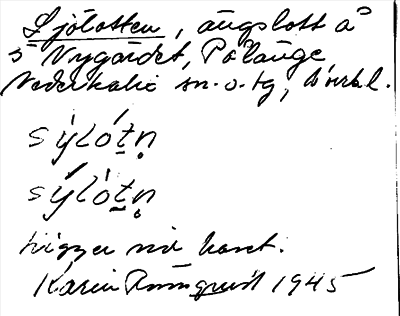 Sjölotten, ängslott å
5 Nygärdet, Pålänge,
Nederkalix sn. o. tg,
sýlótṇ
sýlótṇ
ligger vid havet.
Karin 1945